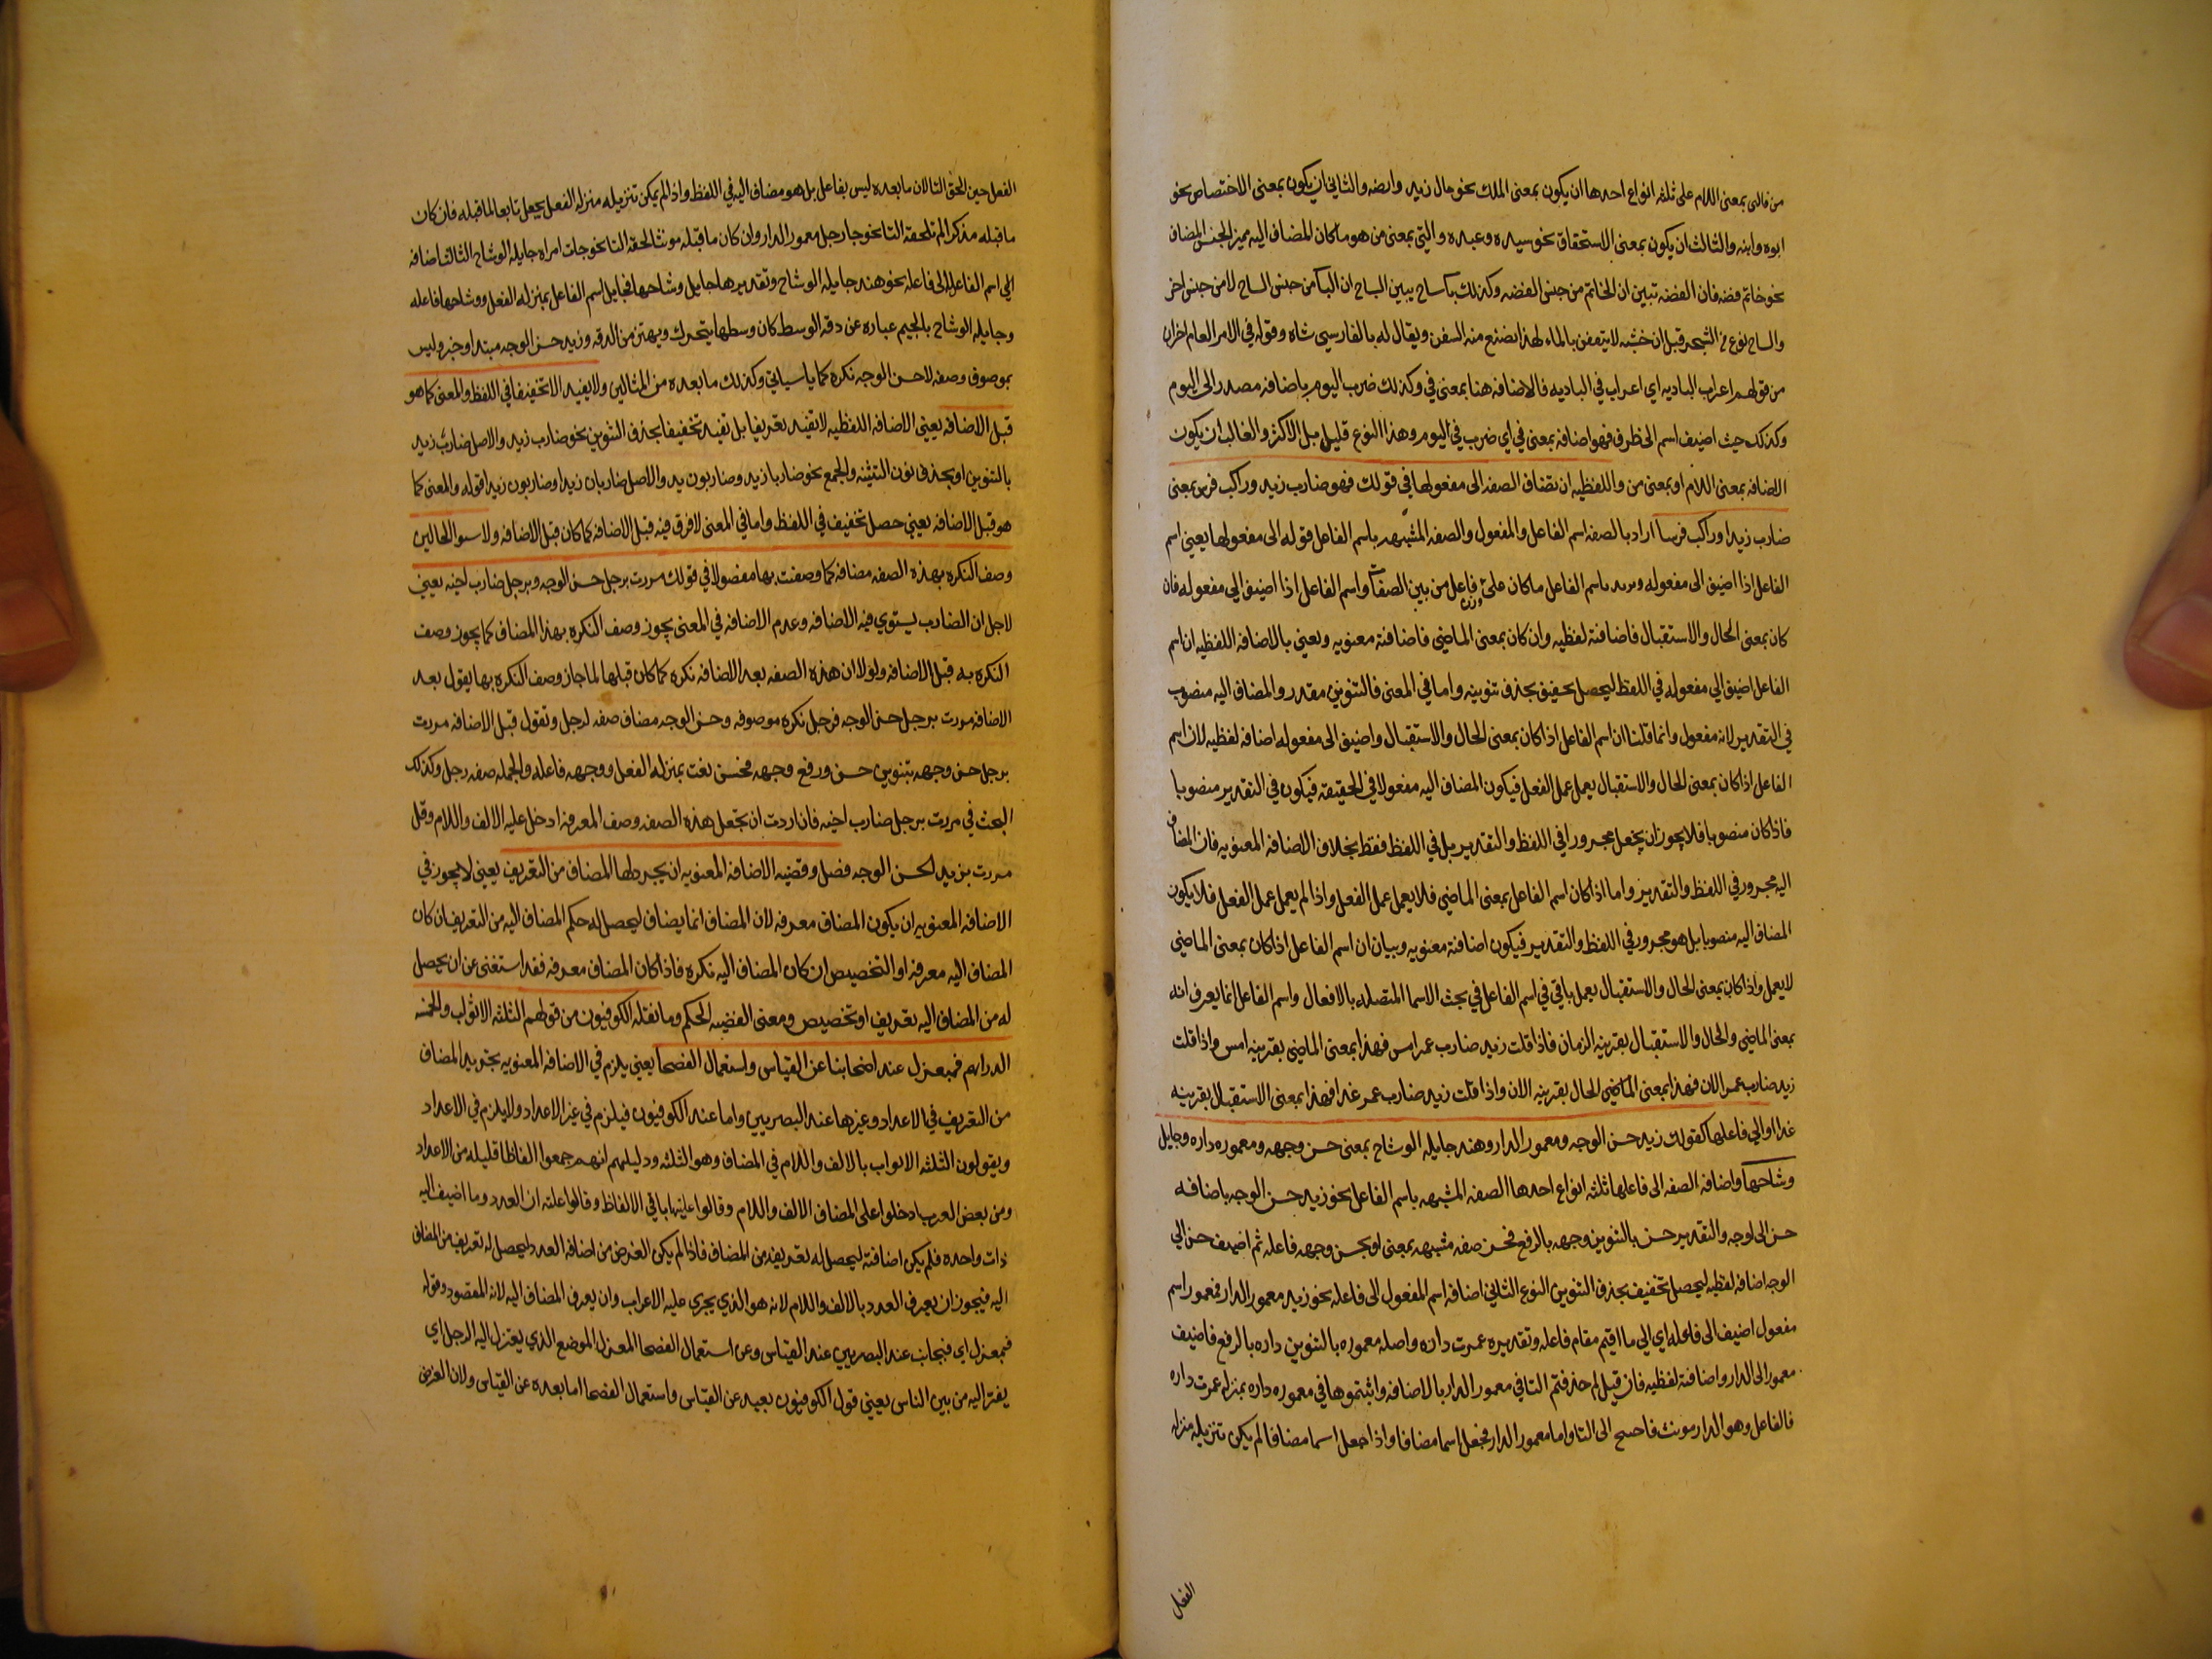 من فالتي بمعنى اللام على ثلثه انواع احدها ان يكون بمعنى الملك نحو مال زيد وارضه والثاني ان يكون بمعنى الاختصاص نحو
ابوه وابنه والثالث ان يكون بمعنى الاستحقاق نحو سيده وعبده والتي بمعنى من هو ما كان المضاف اليه مميز الجنس المضاف
نحو خاتم فضه فان الفضه تبين ان الخاتم من جنس الفضه وكذلك باب ساج يبين الساج ان الباب من جنس الساج لا من جنس اخر
والساج نوع من الشجر قيل ان خشبه لا يتعفن بالماء لهذا تصنع منه السفن ويقال له بالفارسي شاه وقوله في الامر العام احتراز
من قولهم اعراب الباديه اي اعراب في الباديه فالاضافه هنا بمعنى في وكذلك ضرب اليوم باضافه مصدر الى اليوم
وكذلك حيث اضيف اسم الى ظرف فهو اضافه بمعنى في اي ضرب في اليوم وهذا النوع قليل بل الاكثر والغالب ان يكون
الاضافه بمعنى اللام او بمعنى من واللفظيه ان تضاف الصفه الى مفعولها في قولك فهو ضارب زيد وراكب فرس بمعنى
ضارب زيدا وراكب فرسا اراد بالصفه اسم الفاعل والمفعول والصفه المشبهه باسم الفاعل قوله الى مفعولها يعني اسم
الفاعل اذا اضيف الى مفعوله ونريد باسم الفاعل ما كان على وزن فاعل من بين الصفات واسم الفاعل اذا اضيف الي مفعوله فان
كان بمعنى الحال والاستقبال فاضافته لفظيه وان كان بمعنى الماضي فاضافته معنويه ونعني بالاضافه اللفظيه ان اسم
الفاعل اضيف الي مفعوله في اللفظ ليحصل تخفيف بحذف تنوينه واما في المعنى فالتنوين مقدر والمضاف اليه منصوب
في التقدير لانه مفعول وانما قلنا ان اسم الفاعل اذا كان بمعنى الحال والاستقبال واضيف الى مفعوله اضافه لفظيه لان اسم
الفاعل اذا كان بمعنى الحال والاستقبال يعمل عمل الفعل فيكون المضاف اليه مفعولا في الحقيقه فيكون في التقدير منصوبا
فاذا كان منصوبا فلا يجوز ان يجعل مجرورا في اللفظ والتقدير بل في اللفظ فقط بخلاف الاضافه المعنويه فان المضاف
اليه مجرور في اللفظ والتقدير واما اذا كان اسم الفاعل بمعنى الماضي فلا يعمل عمل الفعل واذا لم يعمل عمل الفعل فلا يكون
المضاف اليه منصوبا بل هو مجرور في اللفظ والتقدير فيكون اضافته معنويه وبيان ان اسم الفاعل اذا كان بمعنى الماضي
لا يعمل واذا كان بمعنى الحال والاستقبال يعمل ياتي في اسم الفاعل في بحث الاسما المتصله بالافعال واسم الفاعل انما يعرف انه
بمعنى الماضي والحال والاستقبال بقرينه الزمان فاذا قلت زيد ضارب عمر امس فهذا بمعنى الماضي بقرينه امس واذا قلت
زيد ضارب عمر الان فهذا بمعنى الماضي الحال بقرينه الان واذا قلت زيد ضارب عمر غدا فهذا بمعنى الاستقبال بقرينه
غدا او الي فاعلها كقولك زيد حسن الوجه ومعمور الدار وهند جايله الوشاح بمعنى حسن وجهه ومعموره داره وجايل
وشاحها واضافه الصفه الى فاعلها ثلثه انواع احدها الصفه المشبهه باسم الفاعل نحو زيد حسن الوجه باضافه
حسن الى الوجه والتقدير حسن بالتنوين وجهه بالرفع فحسن صفه مشبهه بمعنى او بحسن وجهه فاعله ثم اضيف حسن الي
الوجه اضافه لفظيه ليحصل تخفيف بحذف التنوين النوع الثاني اضافه اسم المفعول الى فاعله نحو زيد معمور الدار فمعمور اسم
مفعول اضيف الى فاعله اي الي ما اقيم مقام فاعله وتقديره عمرت داره واصله معموره بالتنوين داره بالرفع فاضيف
معمور الى الدار واضافته لفظيه فان قيل لم حذفتم التا في معمور الدار بالاضافه واثبتموها في معموره داره بمنزله عمرت داره
فالفاعل وهو الدار مونث فاحتيج الى التا واما معمور الدار فجعل اسما مضافا واذا جعل اسما مضافا لم يمكن تنزيله منزله
الفعل
الفعل حين الحق التا لان ما بعده ليس بفاعل بل هو مضاف اليه في اللفظ واذا لم يمكن تنزيله منزله الفعل يجعل تابعا لما قبله فان كان
ما قبله مذكرا لم تلحقه التا نحو جا رجل معمور الدار وان كان ما قبله مونثا لحقه التا نحو جات امراه جايله الوشاح الثالث اضافه
الي اسم الفاعل الى فاعله نحو هند جايله الوشاح وتقديرها جايل وشاحها فجايل اسم الفاعل بمنزله الفعل ووشاحها فاعله
وجايله الوشاح بالجيم عباره عن دقه الوسط كان وسطها يتحرك ويهتز من الدقه وزيد حسن الوجه مبتدا وخبر وليس
بموصوف وصفه لا حسن الوجه نكره كما ياسياتي وكذلك ما بعده من المثالين ولا يفيد الا تخفيفا في اللفظ والمعنى كما هو
قبل الاضافه يعني الاضافه اللفظيه لا تفيد تعريفا بل تفيد تخفيفا بحذف التنوين نحو ضارب زيد والاصل ضارب زيد
بالتنوين او بحذف نون التثنيه والجمع نحو ضاربا زيد وضاربون يد والاصل ضاربان زيدا وضاربون زيدا قوله والمعنى كما
هو قبل الاضافه يعني حصل تخفيف في اللفظ واما في المعنى لا فرق فيه قبل الاضافه كما كان قبل الاضافه ولاستوا الحالين
وصف النكره بهذه الصفه مضافه كما وصفت بها مفصولا في قولك مررت برجل حسن الوجه وبرجل ضارب اخيه يعني
لاجل ان الضارب يستوي فيه الاضافه وعدم الاضافه في المعنى يجوز وصف النكره بهذا المضاف كما يجوز وصف
النكره به قبل الاضافه ولولا ان هذه الصفه بعد الاضافه نكره كما كان قبلها لما جاز وصف النكره بها يقول بعد
الاضافه مررت برجل حسن الوجه فرجل نكره موصوفه وحسن الوجه مضاف صفه لرجل وتقول قبل الاضافه مررت
برجل حسن وجهه بتنوين حسن ورفع وجهه فحسن نعت بمنزله الفعل ووجهه فاعله والجمله صفه رجل وكذلك
البحث في مررت برجل ضارب اخيه فان اردت ان تجعل هذه الصفه وصف المعرفه ادخل عليه الالف واللام وقل
مررت بزيد لحسن الوجه فصل وقضيه الاضافه المعنويه ان يجرد لها المضاف من التعريف يعني لا يجوز في
الاضافه المعنويه ان يكون المضاف معرفه لان المضاف انما يضاف ليحصل له حكم المضاف اليه من التعريف ان كان
المضاف اليه معرفه او التخصيص ان كان المضاف اليه نكره فاذا كان المضاف معرفه فقد استغنى عن ان يحصل
له من المضاف اليه تعريف او تخصيص ومعنى القضيه الحكم وما نقله الكوفيون من قولهم الثلثه الاثواب والخمسه
الدراهم فبمعزل عند اصحابنا عن القياس واستعمال الفصحا يعني يلزم في الاضافه المعنويه تجريد المضاف
من التعريف في الاعداد وغيرها عند البصريين واما عند الكوفيون فيلزم في غير الاعداد ولا يلزم في الاعداد
ويقولون الثلثه الابواب بالالف واللام في المضاف وهو الثلثه ودليلهم انهم جمعوا الفاظا قليله من الاعداد
ومن بعض العرب ادخلوا على المضاف الالف واللام وقالوا عليها باقي الالفاظ وقالوا علته ان العدد وما اضيف اليه
ذات واحده فلم يكن اضافته ليحصل له تعريف من المضاف فاذا لم يكن الغرض من اضافه العدد ليحصل له تعريف من المضاف
اليه فيجوز ان يعرف العدد بالالف واللام لانه هو الذي يجري عليه الاعراب وان يعرف المضاف اليه لانه المقصود وقوله
فبمعزل اي فبجانب عند البصريين عند القياس وعن استعمال الفصحا المعزل الموضع الذي يعتزل اليه الرجل اي
يفتر اليه من بين الناس يعني قول الكوفيون بعيد عن القياس واستعمال الفصحا اما بعده عن القياس ولان الغرض